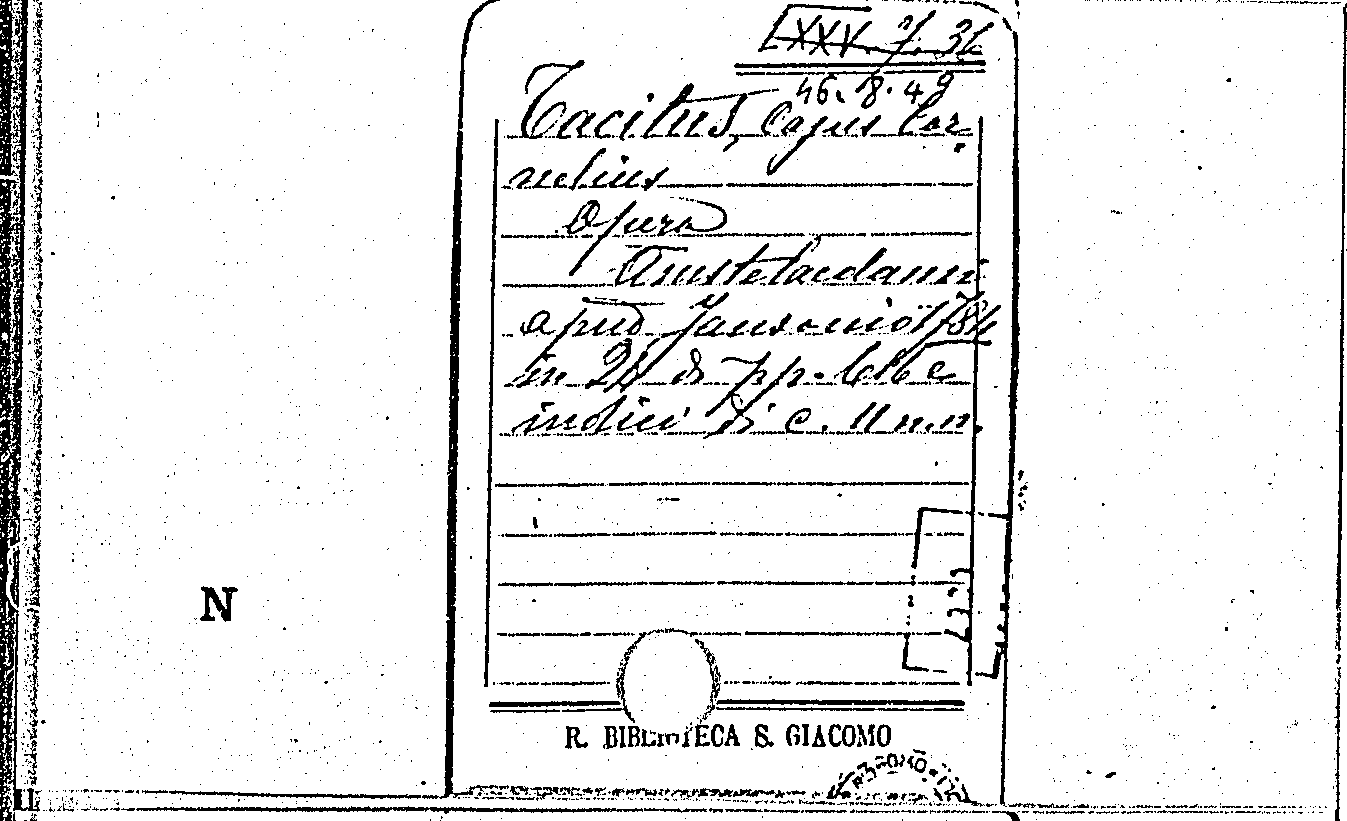 LXXV. 7. 36
46. 8. 49
Tacitus, Cajus Cor
nelius
Opera
Amstelaedami
apud Jansonio
in 24 di pp. 616 e
indici di c. 11 n.n.
N
R. BIBLIOTECA S. GIACOMO